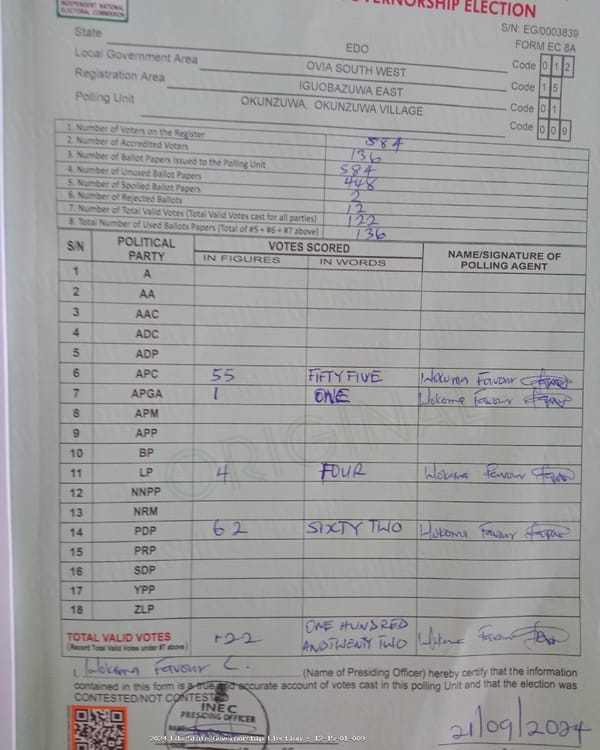 INDEPENDENT NATIONAL
ELECTORAL COMMISSION
GOVERNORSHIP ELECTION
S/N: EG/0003839
FORM EC 8A
State EDO Code 0 1 2
Local Government Area OVIA SOUTH WEST Code 1 5
Registration Area IGUOBAZUWA EAST Code 0 1
Polling Unit OKUNZUWA, OKUNZUWA VILLAGE Code 0 0 9
1. Number of Voters on the Register 584
2. Number of Accredited Voters 136
3. Number of Ballot Papers Issued to the Polling Unit 584
4. Number of Unused Ballot Papers 448
5. Number of Spoiled Ballot Papers 2
6. Number of Rejected Ballots 12
7. Number of Total Valid Votes (Total Valid Votes cast for all parties) 122
8. Total Number of Used Ballots Papers (Total of #5 + #6 + #7 above) 136
S/N POLITICAL PARTY VOTES SCORED NAME/SIGNATURE OF POLLING AGENT
IN FIGURES IN WORDS
1 A
2 AA
3 AAC
4 ADC
5 ADP
6 APC 55 FIFTY FIVE Wokoma Favour
7 APGA 1 ONE Wokoma Favour
8 APM
9 APP
10 BP
11 LP 4 FOUR Wokoma Favour
12 NNPP
13 NRM
14 PDP 62 SIXTY TWO Wokoma Favour
15 PRP
16 SDP
17 YPP
18 ZLP
ORIGINAL
TOTAL VALID VOTES 122 ONE HUNDRED AND TWENTY TWO Wokoma Favour
(Record Total Valid Votes under #7 above)
I, Wokoma Favour C. (Name of Presiding Officer) hereby certify that the information
contained in this form is a true and accurate account of votes cast in this polling Unit and that the election was
CONTESTED/NOT CONTESTED
INEC
PRESIDING OFFICER
21/09/2024
2024 Edo State Governorship Election : 12-15-01-009